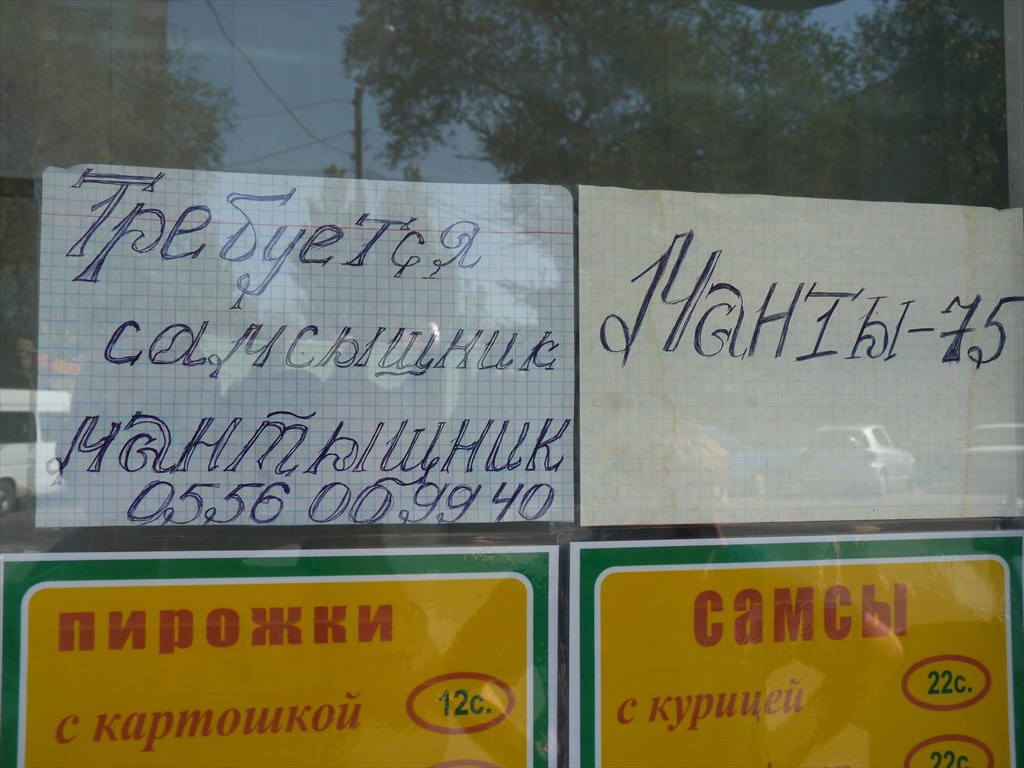 Требуется
самсыщник
мантыщник
0556 06 99 40
Манты-75
пирожки
с картошкой 12с.
самсы
с курицей 22с.
22с